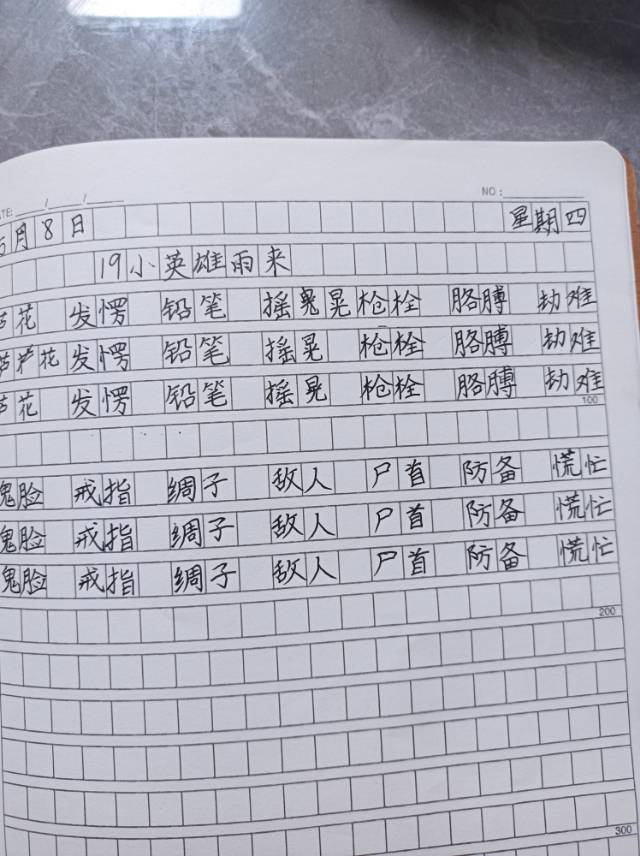 DATE: / /
NO:
5月8日 星期四
19小英雄雨来
芦花 发愣 铅笔 摇晃晃枪栓 胳膊 劫难
芦芦花发愣 铅笔 摇晃 枪栓 胳膊 劫难
芦花 发愣 铅笔 摇晃 枪栓 胳膊 劫难
100
鬼脸 戒指 绸子 敌人 尸首 防备 慌忙
鬼脸 戒指 绸子 敌人 尸首 防备 慌忙
鬼脸 戒指 绸子 敌人 尸首 防备 慌忙
200
300